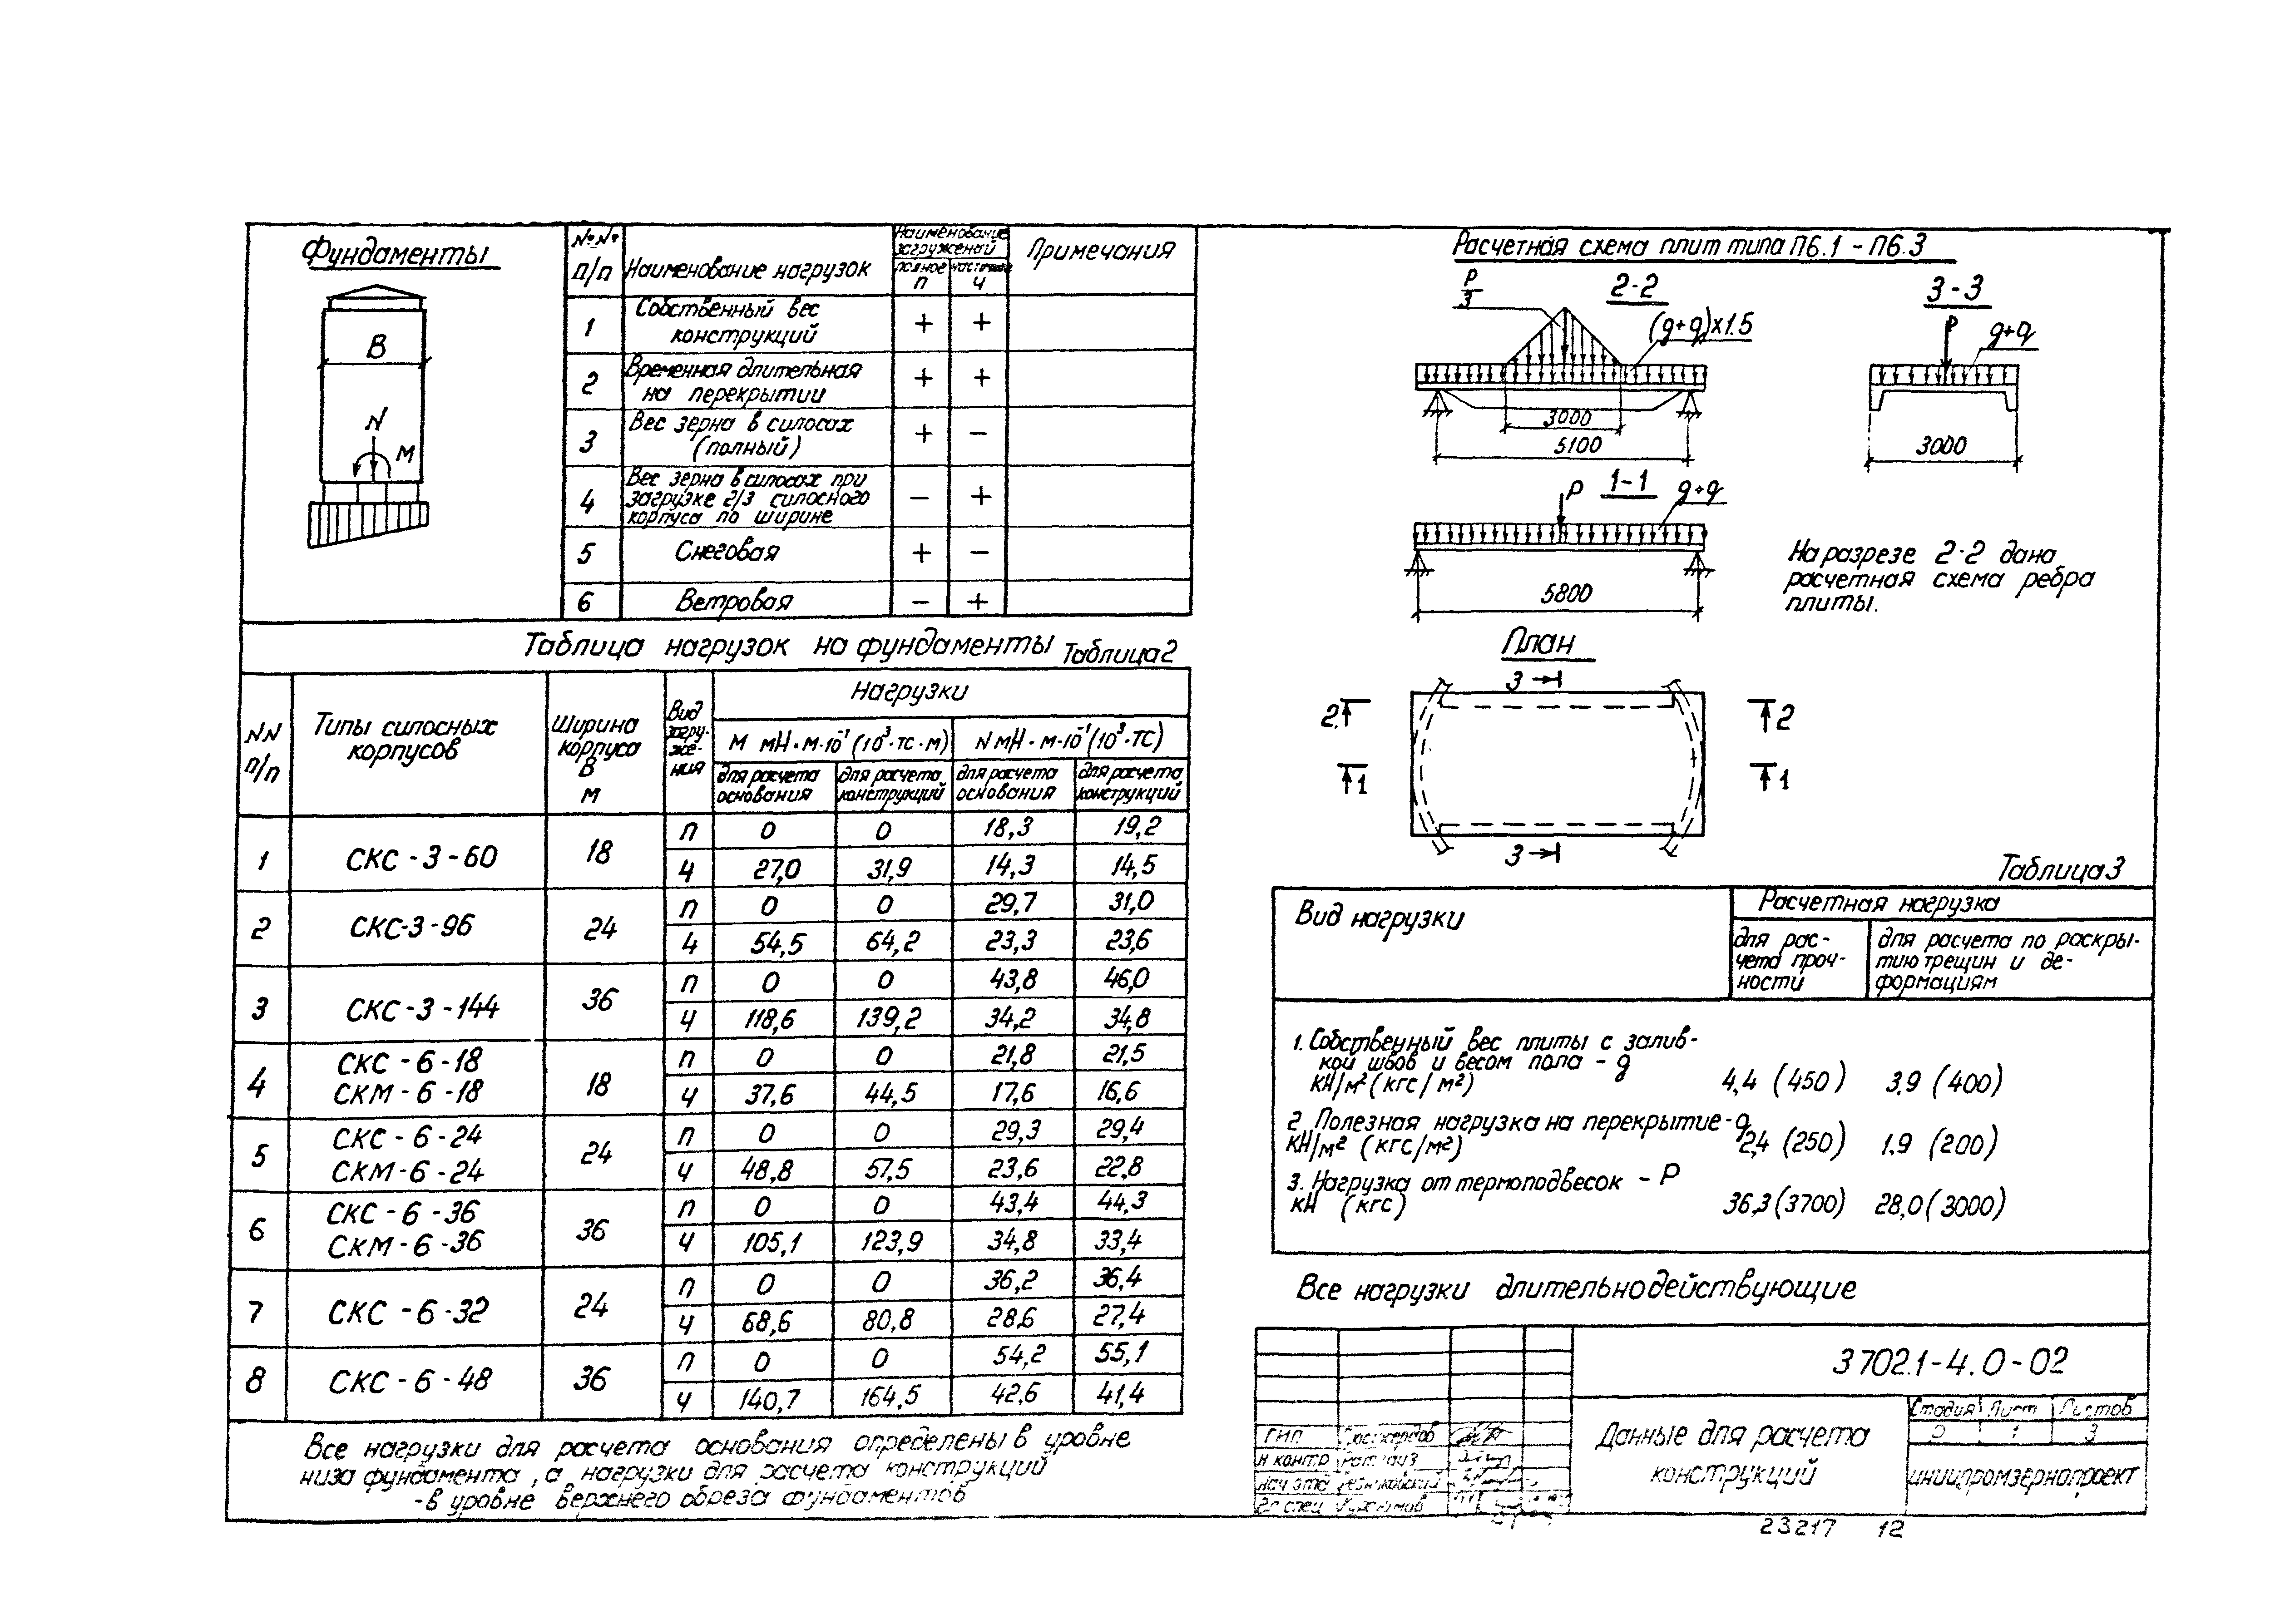 Фундаменты
В
N
М
№№ п/п
Наименование нагрузок
Наименование загружений
полное п
частичное ч
Примечания
1 Собственный вес конструкций + +
2 Временная длительная на перекрытии + +
3 Вес зерна в силосах (полный) + −
4 Вес зерна в силосах при загрузке 2/3 силосного корпуса по ширине − +
5 Снеговая + −
6 Ветровая − +
Таблица нагрузок на фундаменты Таблица 2
NN п/п
Типы силосных корпусов
Ширина корпуса В м
Вид загружения
Нагрузки
М мН·м·10⁻¹ (10³·тс·м)
N мН·м·10⁻¹ (10³·тс)
для расчета основания
для расчета конструкций
для расчета основания
для расчета конструкций
1 СКС-3-60 18 п 0 0 18,3 19,2
ч 27,0 31,9 14,3 14,5
2 СКС-3-96 24 п 0 0 29,7 31,0
ч 54,5 64,2 23,3 23,6
3 СКС-3-144 36 п 0 0 43,8 46,0
ч 118,6 139,2 34,2 34,8
4 СКС-6-18 СКМ-6-18 18 п 0 0 21,8 21,5
ч 37,6 44,5 17,6 16,6
5 СКС-6-24 СКМ-6-24 24 п 0 0 29,3 29,4
ч 48,8 57,5 23,6 22,8
6 СКС-6-36 СКМ-6-36 36 п 0 0 43,4 44,3
ч 105,1 123,9 34,8 33,4
7 СКС-6-32 24 п 0 0 36,2 36,4
ч 68,6 80,8 28,6 27,4
8 СКС-6-48 36 п 0 0 54,2 55,1
ч 140,7 164,5 42,6 41,4
Все нагрузки для расчета основания определены в уровне
низа фундамента, а нагрузки для расчета конструкций
-в уровне верхнего обреза фундаментов
Расчетная схема плит типа П6.1 - П6.3
P/3
2-2
(g+q)х1.5
3000
5100
3-3
Р
g+q
3000
Р
1-1
g+q
5800
На разрезе 2-2 дана
расчетная схема ребра
плиты.
План
3
2
2
1
1
3
Таблица 3
Вид нагрузки
Расчетная нагрузка
для расчета прочности
для расчета по раскрытию трещин и деформациям
1. Собственный вес плиты с залив-
кой швов и весом пола - g
кН/м² (кгс/м²) 4,4 (450) 3,9 (400)
2. Полезная нагрузка на перекрытие - q
кН/м² (кгс/м²) 2,4 (250) 1,9 (200)
3. Нагрузка от термоподвесок - Р
кН (кгс) 36,3 (3700) 28,0 (3000)
Все нагрузки длительнодействующие
3 702.1-4.0-02
Данные для расчета
конструкций
Стадия Лист Листов
Р 1 3
ЦНИИпромзернопроект
ГИП
Н контр
Нач отд
Гл спец
23217 12